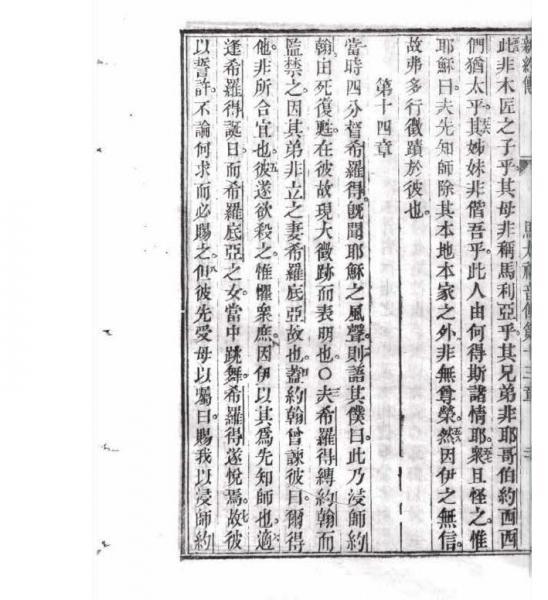 馬太福音傳第十三章
此非木匠之子乎其母非稱馬利亞乎其兄弟非耶哥伯約西西
們猶太乎其姊妹非偕吾乎此人由何得斯諸情耶衆且怪之惟
耶穌曰夫先知師除其本地本家之外非無尊榮然因伊之無信
故弗多行徵蹟於彼也
第十四章
當時四分督希羅得旣聞耶穌之風聲則語其僕曰此乃浸師約
翰由死復甦在彼故現大徵跡而表明也○夫希羅得縛約翰而
監禁之因其弟非立之妻希羅底亞故也蓋約翰曾諫彼曰爾得
他非所合宜也彼遂欲殺之惟懼衆庶因伊以其爲先知師也適
逢希羅得誕日而希羅底亞之女當中跳舞希羅得遂悅焉故彼
以誓許不論何求而必賜之但彼先受母以囑曰賜我以浸師約